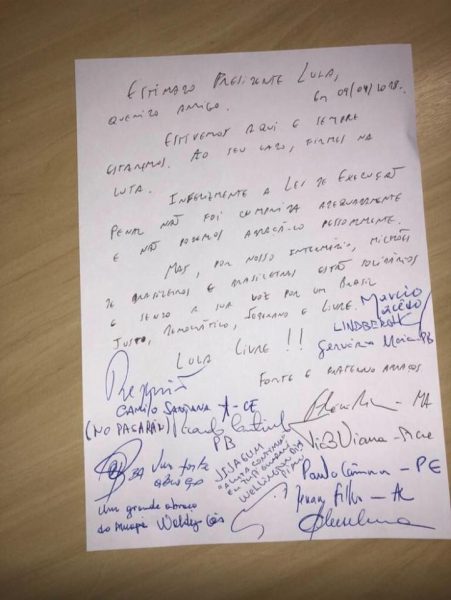 ESTIMADO PRESIDENTE LULA,
QUERIDO AMIGO. Em 09/04/2018.
ESTIVEMOS AQUI E SEMPRE
ESTAREMOS. AO SEU LADO, FIRMES NA
LUTA.
INFELIZMENTE A LEI DE EXECUÇÃO
PENAL NÃO FOI CUMPRIDA ADEQUADAMENTE
E NÃO PODEMOS ABRAÇÁ-LO PESSOALMENTE.
MAS, POR NOSSO INTERMÉDIO, MILHÕES
DE BRASILEIROS E BRASILEIRAS ESTÃO SOLIDÁRIOS
E SENDO A SUA VOZ POR UM BRASIL
JUSTO, DEMOCRÁTICO, SOBERANO E LIVRE.
Marcio Macedo
LULA LIVRE!!
LINDBERGH
Gervásio Maia PB
FORTE E FRATERNO ABRAÇO
CAMILO SANTANA - CE
- MA
(NO PASARÁN)
PB
Viana - Acre
BA Um forte abraço
"A LUTA CONTINUA"
WELLINGTON DIAS
Paulo Câmara - PE
Renan Filho - AL
Um grande abraço
do Amapá Waldez Góes